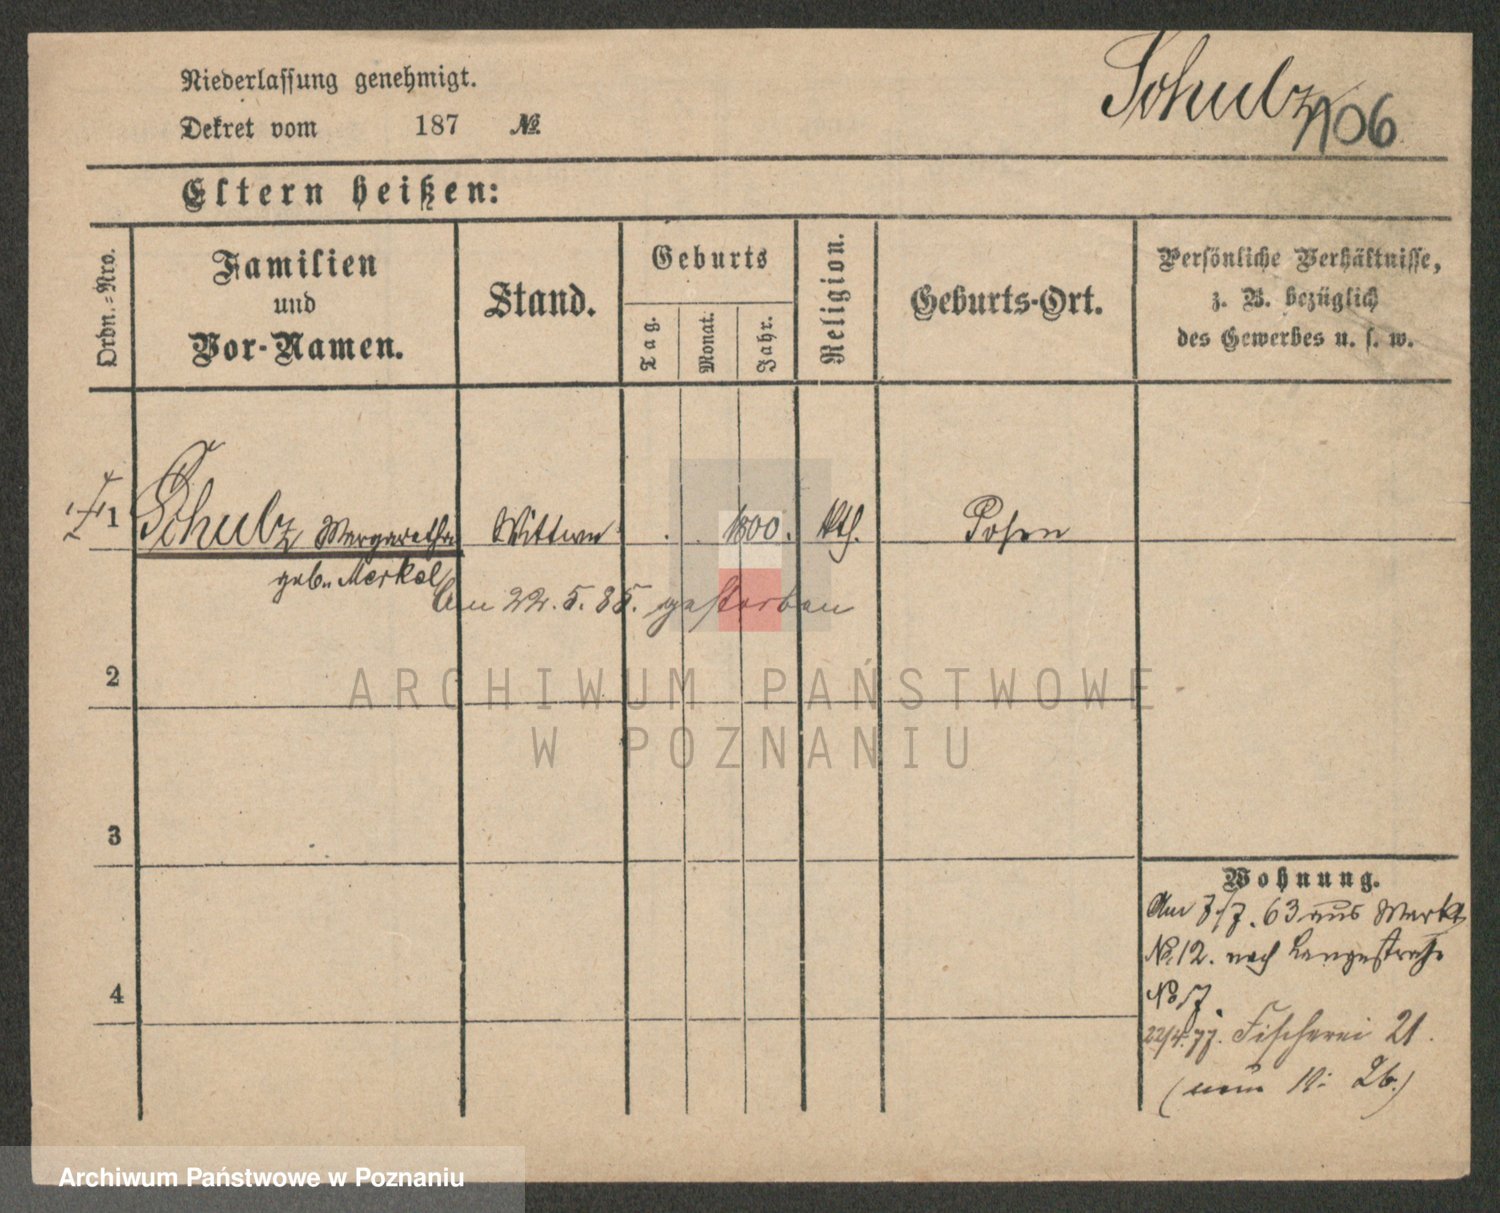 Schulz
706
Niederlassung genehmigt.
Dekret vom 187 №
Eltern heißen:
Ordn.-Nro.
Familien
und
Vor-Namen.
Stand.
Geburts
Tag.
Monat.
Jahr.
Religion.
Geburts-Ort.
Persönliche Verhältnisse,
z. B. bezüglich
des Gewerbes u. s. w.
1 Schulz Margaretha Wittwe 1800. kth. Posen
geb. Merkel
Am 22. 5. 85. gestorben
2
ARCHIWUM PAŃSTWOWE
W POZNANIU
3
4
Wohnung.
Am 7/7. 63 aus Markt
No. 12. nach Langestraße
No 7
22/4. 77. Fischerei 21.
Archiwum Państwowe w Poznaniu